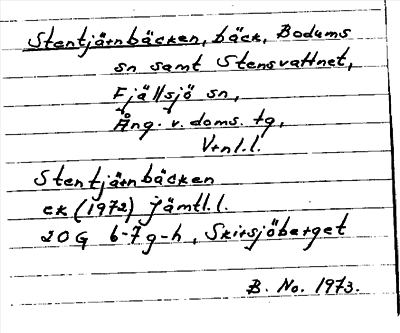 Stentjärnbäcken, bäck, Bodums
sn samt Stensvattnet,
Fjällsjö sn,
Ång. v. doms. tg,
Vtnl.l.
Stentjärnbäcken
ek (1972) Jämtl.l.
20G 6-7g-h, Skirsjöberget
B. No. 1973.